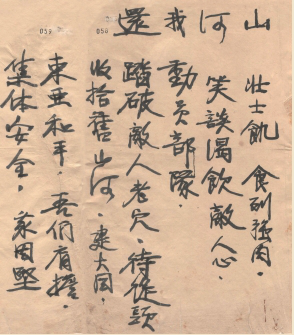 還我河山
壯士飢 食列强肉。
笑談渴飲敵人心。
動員部隊。
踏破敵人老穴。待從頭
收拾舊山河。建大同。
東亞和平。吾們有擔。
集体安全。
050